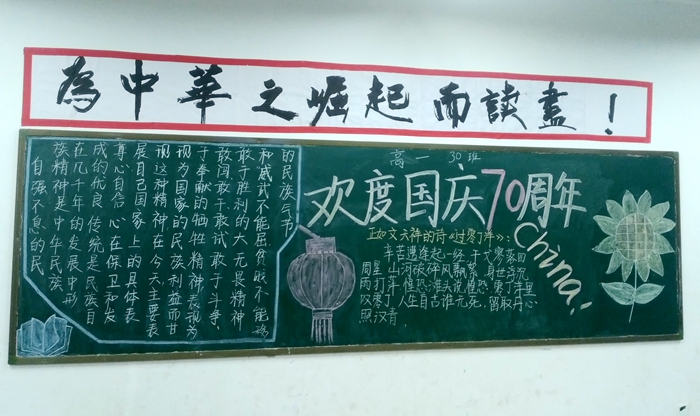 為中華之崛起而讀書！
高一 30班
欢度国庆70周年
China!
自强不息的民
族精神是中华民族
在几千年的发展中形
成的优良传统是民族自
尊心自信心在保卫和发
展自己国家上的具体表
现这种精神在今天主要表
现为国家的民族利益而甘
于奉献的牺牲精神表现为
敢闯敢于敢试敢于斗争、
敢于胜利的大无畏精神
和威武不能屈贫贱不能移
的民族气节
正如文天祥的诗《过零丁洋》：
辛苦遭逢起一经，干戈寥落四
周星。山河破碎风飘絮，身世浮沉
雨打萍。惶恐滩头说惶恐，零丁洋里
叹零丁。人生自古谁无死，留取丹心
照汉青。